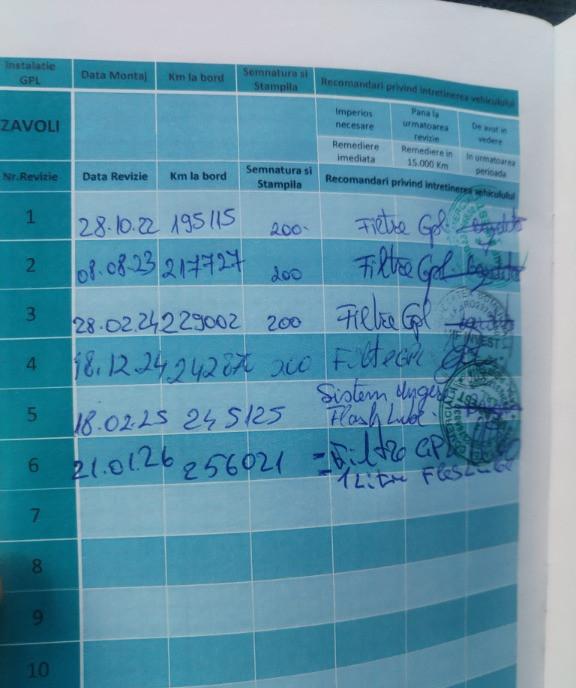 Instalatie GPL Data Montaj Km la bord Semnatura si Stampila Recomandari privind intretinerea vehiculului
ZAVOLI
Imperios necesare Pana la urmatoarea revizie De avut in vedere
Remediere imediata Remediere in 15.000 Km In urmatoarea perioada
Nr.Revizie Data Revizie Km la bord Semnatura si Stampila Recomandari privind intretinerea vehiculului
1 28.10.22 195115 200- Filtre Gpl
2 08.08.23 217727 200 Filtre Gpl
3 28.02.24 229002 200 Filtre Gpl
4 18.12.24 200
Sistem
5 18.02.25 245125 Flash Lube
6 21.01.26 256021 = Filtre GPL
1 Litru
7
8
9
10